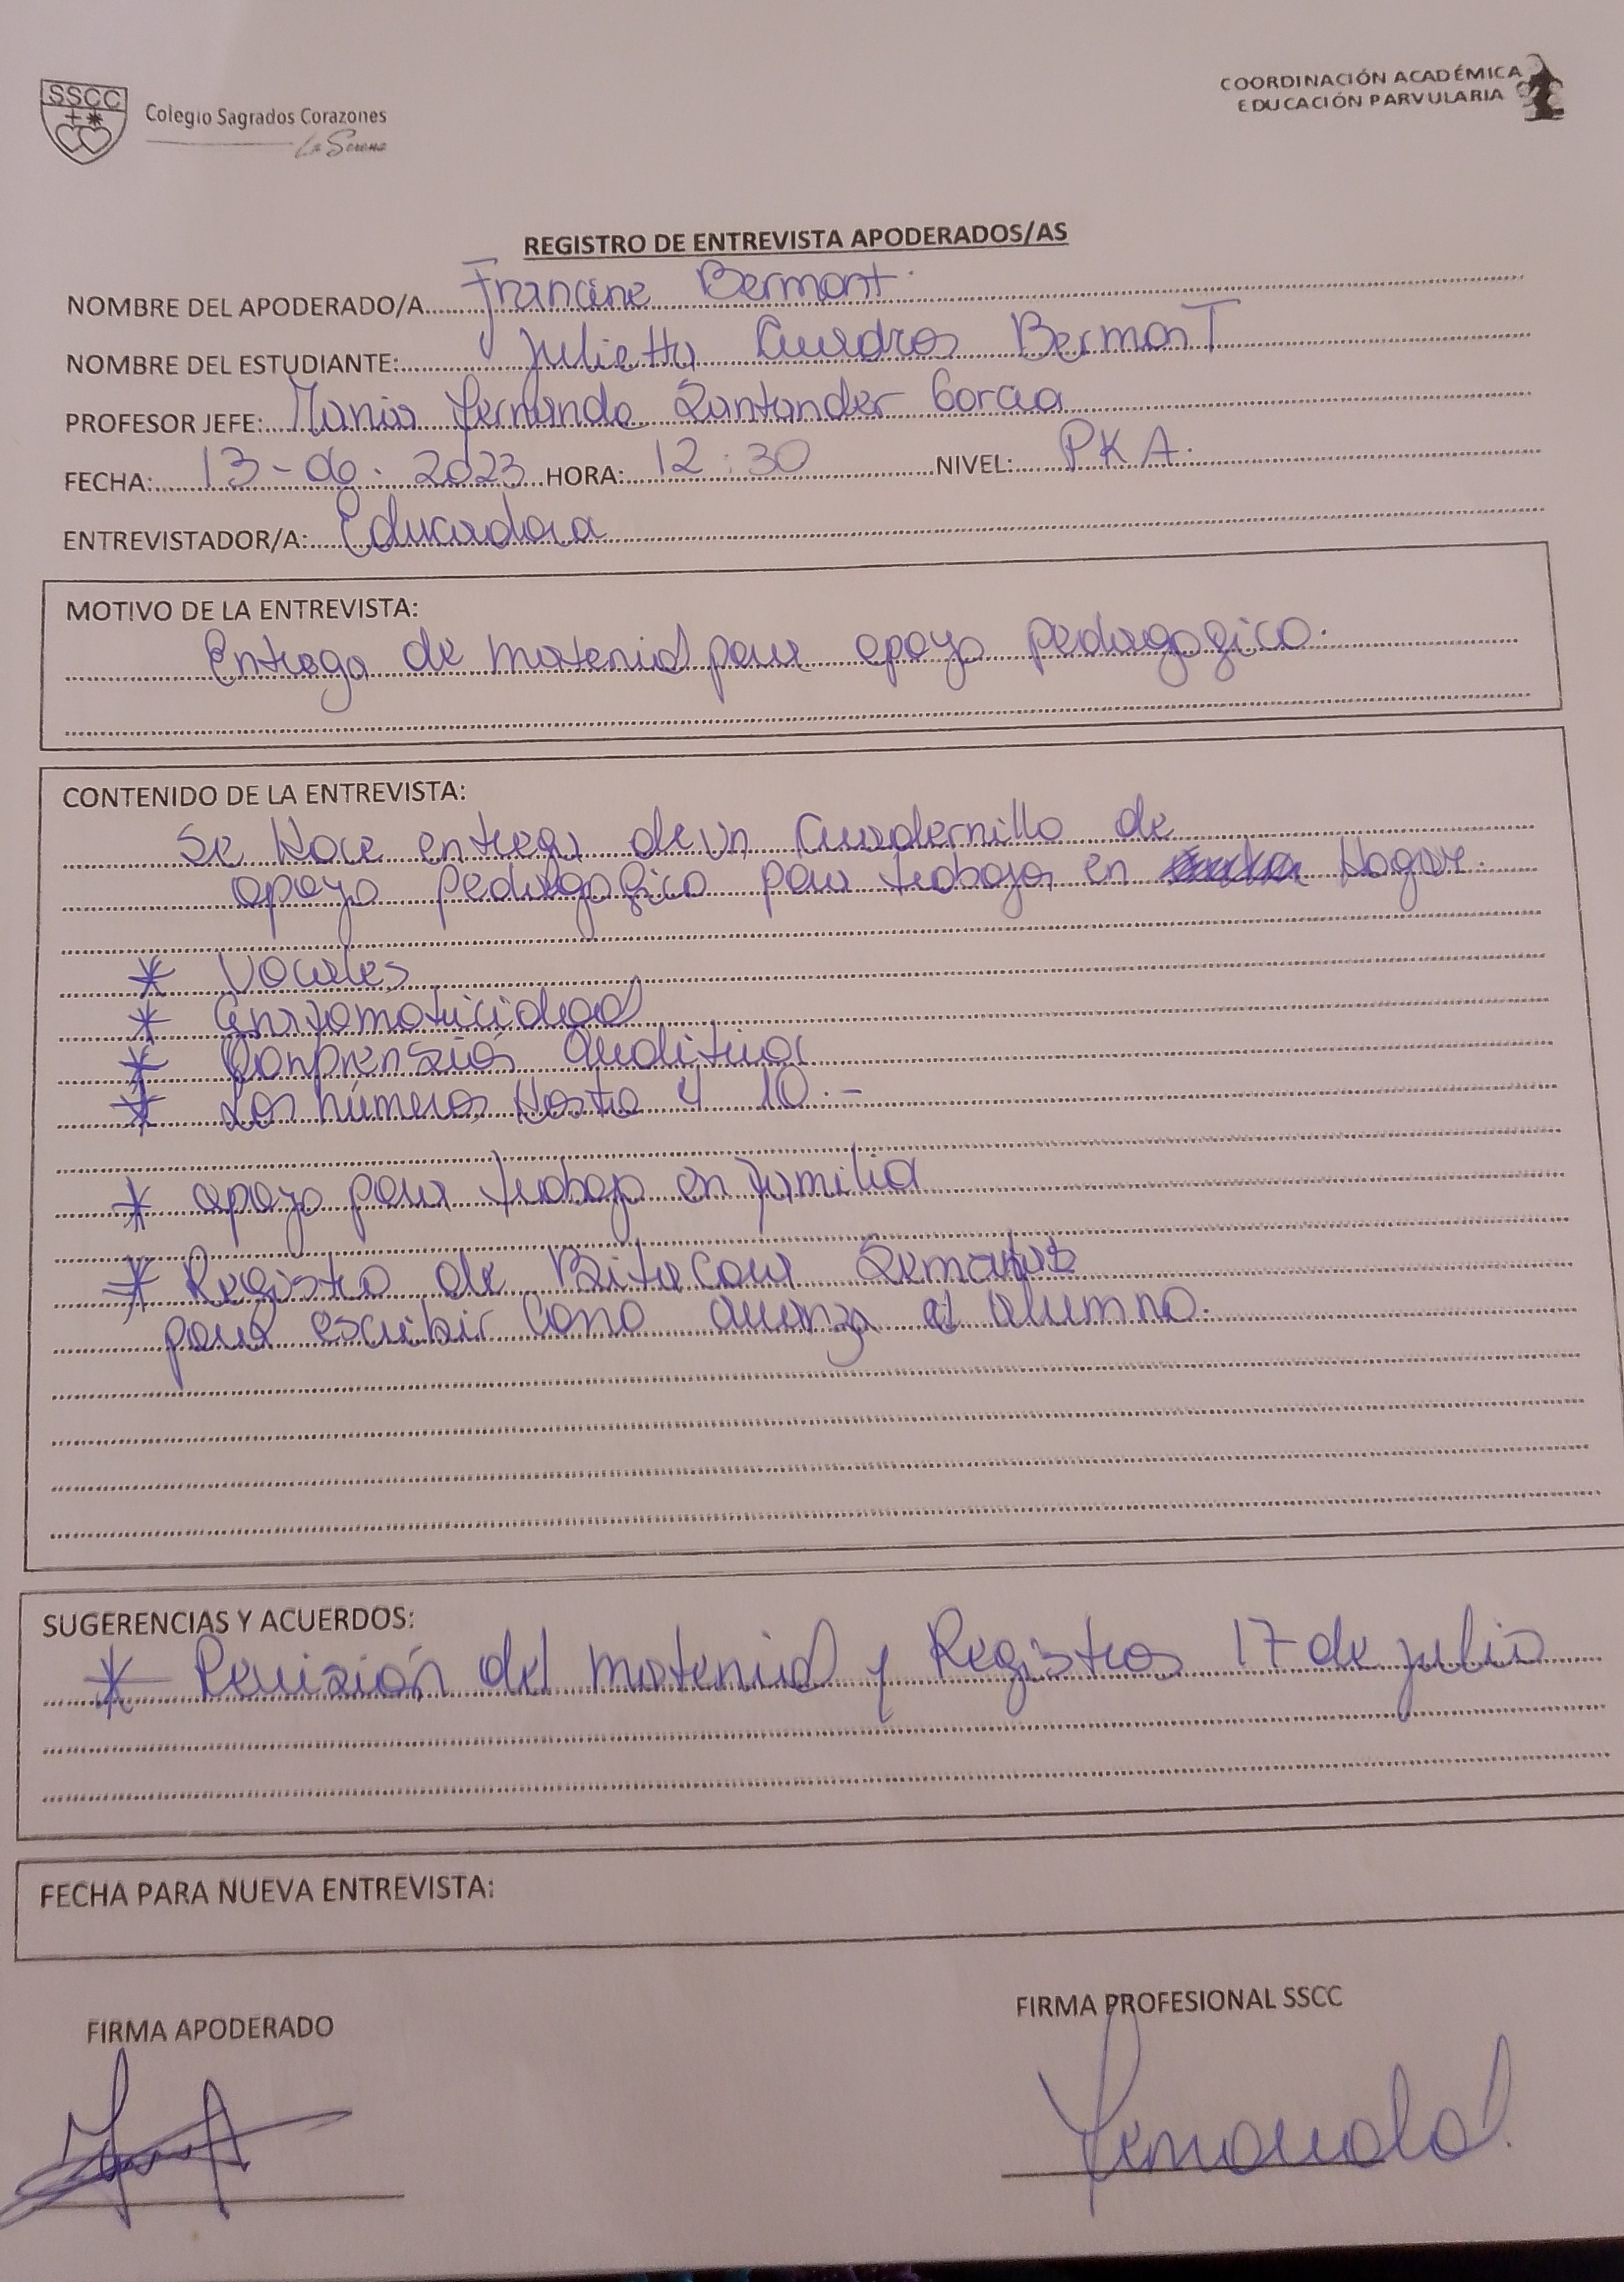 SSCC
Colegio Sagrados Corazones
La Serena
COORDINACIÓN ACADÉMICA
EDUCACIÓN PARVULARIA
REGISTRO DE ENTREVISTA APODERADOS/AS
NOMBRE DEL APODERADO/A Francine Bermont.
NOMBRE DEL ESTUDIANTE: Julietta Cuadros Bermont
PROFESOR JEFE: Maria Fernanda Santander Garcia
FECHA: 13-06-2023 HORA: 12:30 NIVEL: PKA.
ENTREVISTADOR/A: Educadora
MOTIVO DE LA ENTREVISTA:
Entrega de material para apoyo pedagogico.
CONTENIDO DE LA ENTREVISTA:
Se Hace entrega de un Cuadernillo de
apoyo pedagogico para trabajar en Hogar.
* Vocales
* Grafomotricidad
* Conprensión Auditiva
* Los números Hasta 4 10.-
* apoyo para trabajo en familia
* Registro de Bitacora
para escribir como avanza el alumno.
SUGERENCIAS Y ACUERDOS:
* Revisión del material y Registros 17 de julio
FECHA PARA NUEVA ENTREVISTA:
FIRMA APODERADO
FIRMA PROFESIONAL SSCC